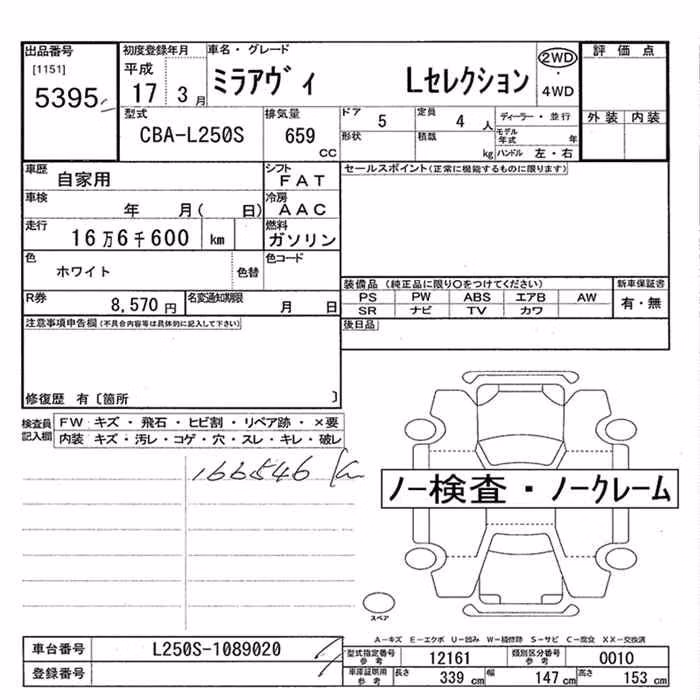 出品番号 初度登録年月 車名・グレード 2WD 評価点
[1151] 平成 ・
5395 17 3月 ミラアヴィ Lセレクション 4WD
型式 排気量 ドア 5 定員 4人 ディーラー・並行 外装 内装
CBA-L250S 659 CC 形状 積載 kg モデル年式 年
ハンドル 左・右
車歴 自家用 シフト FAT セールスポイント(正常に機能するものに限ります)
車検 年 月( 日) 冷房 AAC
走行 16万6千600 km 燃料 ガソリン
色 ホワイト 色替 色コード
装備品 (純正品に限り○をつけてください) 新車保証書
R券 8,570円 名変通知期限 月 日 PS PW ABS エアB AW 有・無
SR ナビ TV カワ
注意事項申告欄(不具合内容等は具体的に記入して下さい) 後日品
修復歴 有〔箇所 〕
検査員記入欄 FW キズ・飛石・ヒビ割・リペア跡・×要
内装 キズ・汚レ・コゲ・穴・スレ・キレ・破レ
166546 km
ノー検査・ノークレーム
スペア
A-キズ E-エクボ U-凹み W-補修跡 S-サビ C-腐食 XX-交換済
車台番号 L250S-1089020 型式指定番号 参考 12161 類別区分番号 参考 0010
登録番号 車庫証明用 参考 長さ 339 cm 幅 147 cm 高さ 153 cm